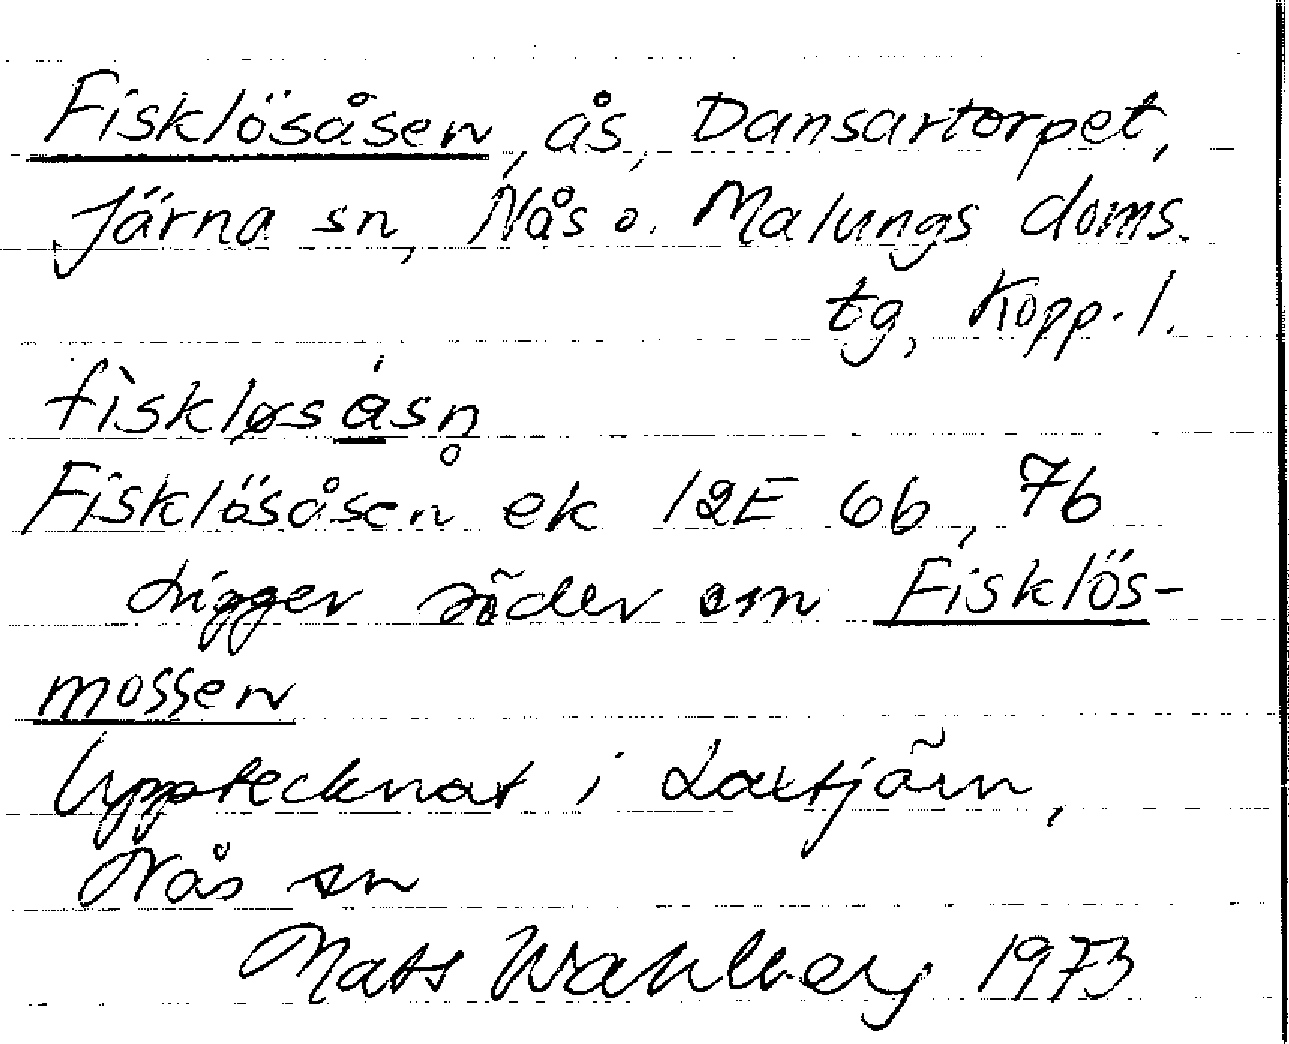 Fisklösåsen, ås, Dansartorpet,
Järna sn, Nås o. Malungs doms.
tg, Kopp. l.
fìskløsásn̥
Fisklösåsen ek 12E 6b, 7b
Ligger söder om Fisklös-
mossen
Upptecknat i Laxtjärn,
Nås sn
Mats Wahlberg 1973